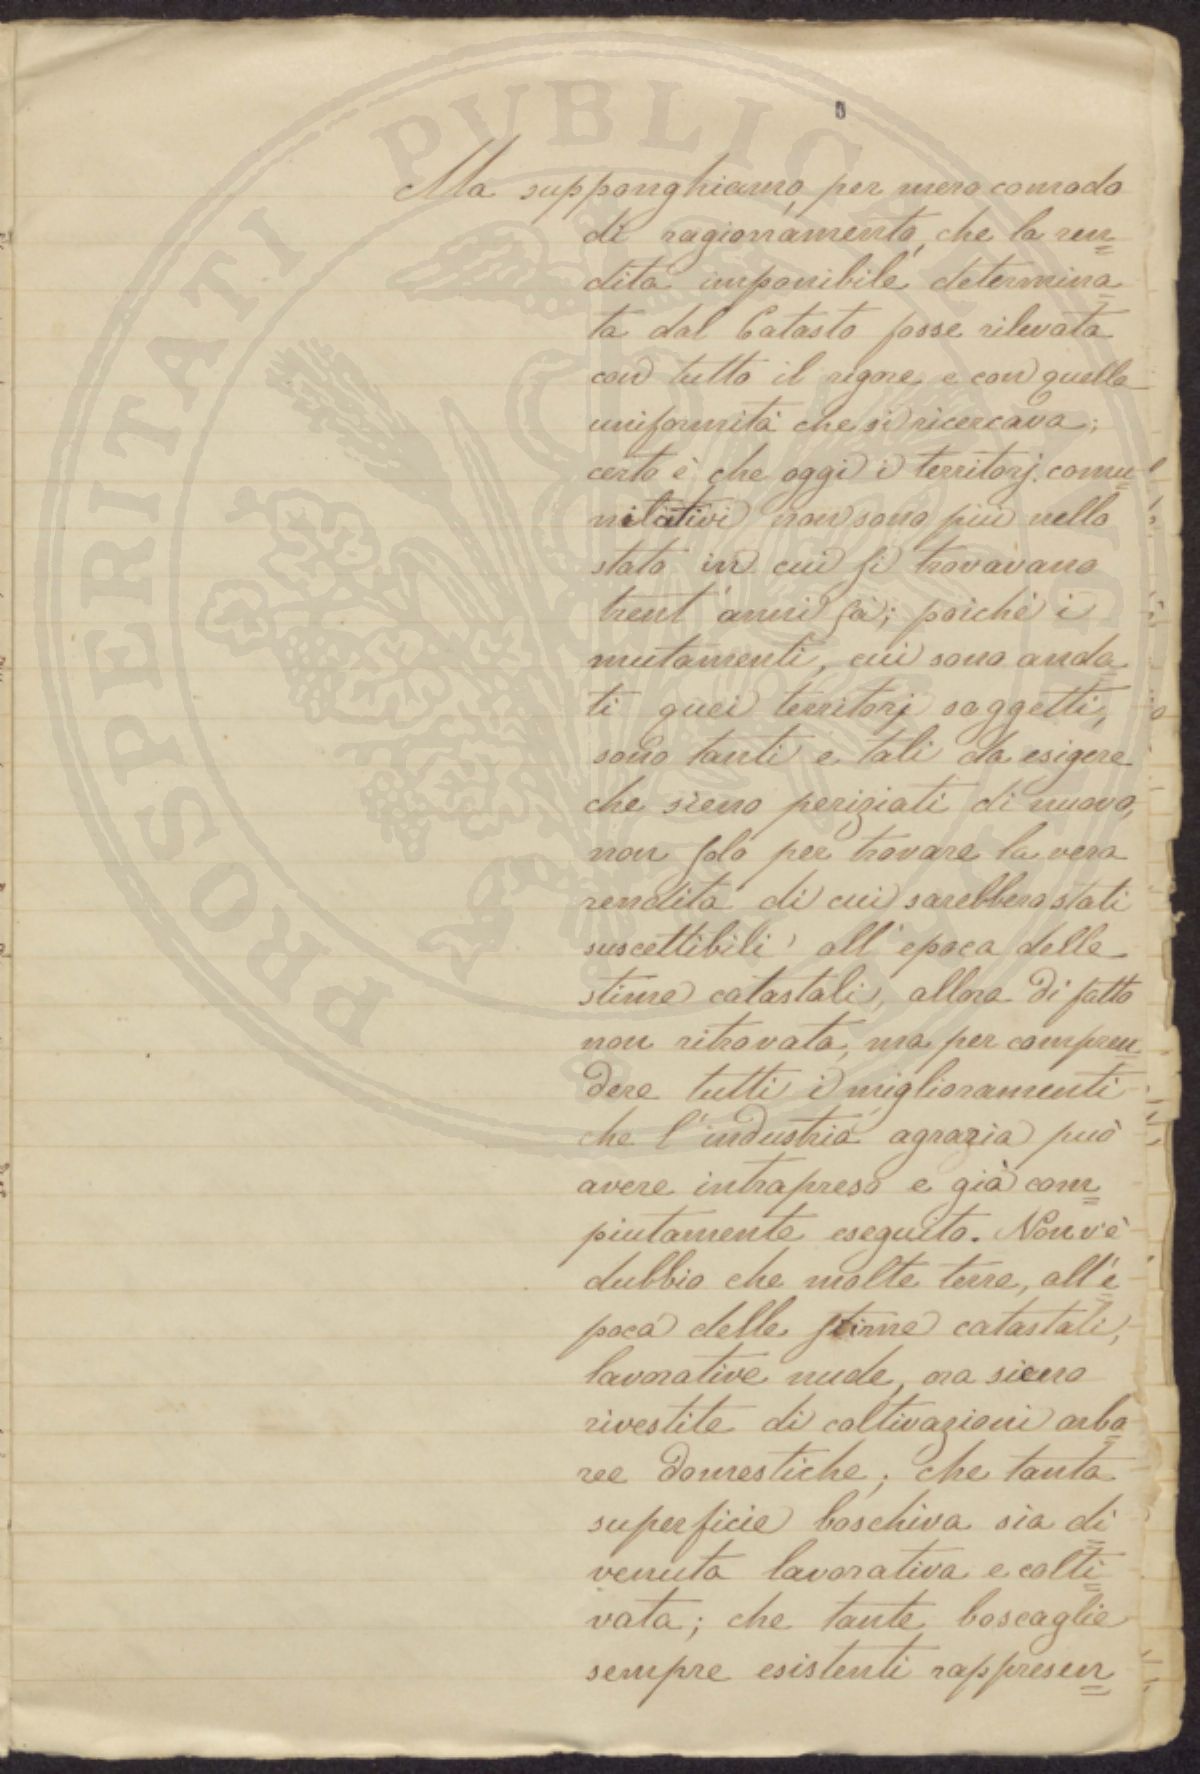 PROSPERITATI PUBLICAE
Ma supponghiamo, per mero comodo
di ragionamento, che la ren=
dita imponibile, determina=
ta dal Catasto fosse rilevata
con tutto il rigore e con quella
uniformità che si ricercava;
certo è che oggi i territorj comu=
nitativi non sono più nello
stato in cui si trovavano
trent'anni fà; poichè i
mutamenti, cui sono anda=
ti quei territorj soggetti,
sono tanti e tali da esigere
che sieno periziati di nuovo,
non solo per trovare la vera
rendita di cui sarebbero stati
suscettibili all'epoca delle
stime catastali, allora di fatto
non ritrovata, ma per compren=
dere tutti i miglioramenti
che l'industria agraria può
avere intrapreso e già com=
piutamente eseguito. Non v'è
dubbio che molte terre, all'e=
poca delle stime catastali,
lavorative nude, ora sieno
rivestite di coltivazioni arbo=
ree domestiche; che tanta
superficie boschiva sia di=
venuta lavorativa e colti=
vata; che tante boscaglie
sempre esistenti rappresen=